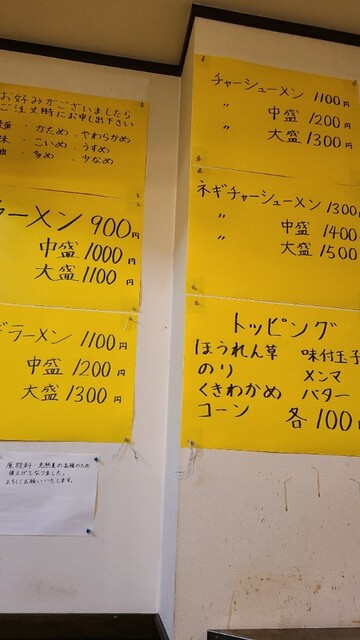 お好みがございましたら
ご注文時にお申し出下さい
麺・かため・やわらかめ
味・こいめ・うすめ
油・多め・少なめ
ラーメン 900円
中盛 1000円
大盛 1100円
ラーメン 1100円
中盛 1200円
大盛 1300円
原材料・光熱費の高騰のため
値上げとなりました。
よろしくお願いいたします。
チャーシューメン 1100円
〃 中盛 1200円
〃 大盛 1300円
ネギチャーシューメン 1300円
〃 中盛 1400
〃 大盛 1500
トッピング
ほうれん草 味付玉子
のり メンマ
くきわかめ バター
コーン 各100円